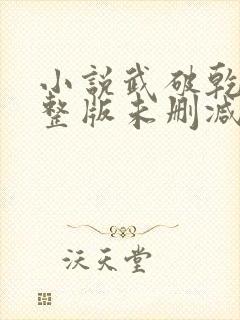 小说武破乾
整版未删减
沃天堂